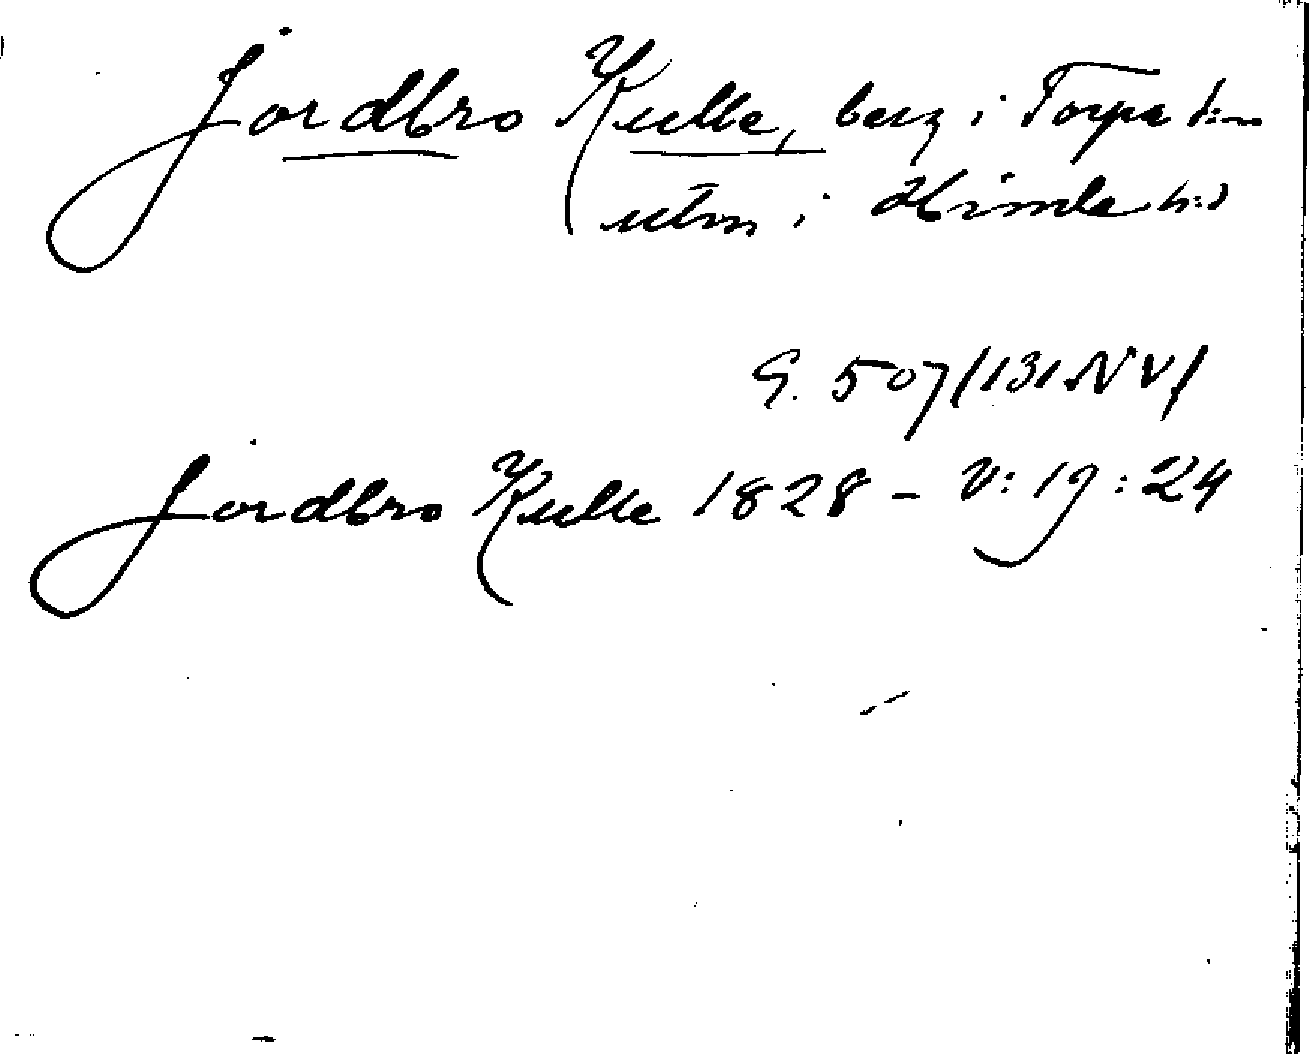 Jordbro Kulle, berg i Torpa s:n
utm i Himle h:d
G. 507/131 NV/
Jordbro Kulle 1828 - V: 19: 24